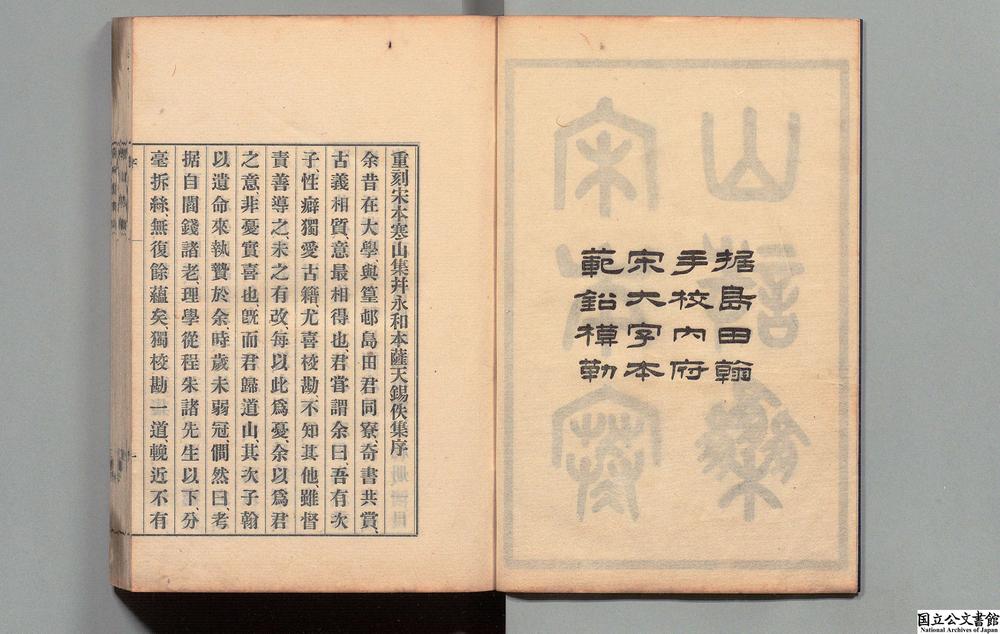 据島田翰
手校內府
宋大字本
範鉛槧勒
重刻宋本寒山集幷永和本薩天錫佚集序
余昔在大學與篁邨島田君同寮奇書共賞、
古義相質、意最相得也、君嘗謂余曰、吾有次
子、性癖獨愛古籍、尤喜校勘、不知其他、雖督
責善導之、未之有改、每以此爲憂、余以爲君
之意、非憂實喜也、旣而君歸道山、其次子翰
以遺命來執贄於余、時歲未弱冠、僩然曰、考
据自閻錢諸老、理學從程朱諸先生以下、分
毫拆絲、無復餘蘊矣、獨校勘一道、輓近不有
国立公文書館
National Archives of Japan